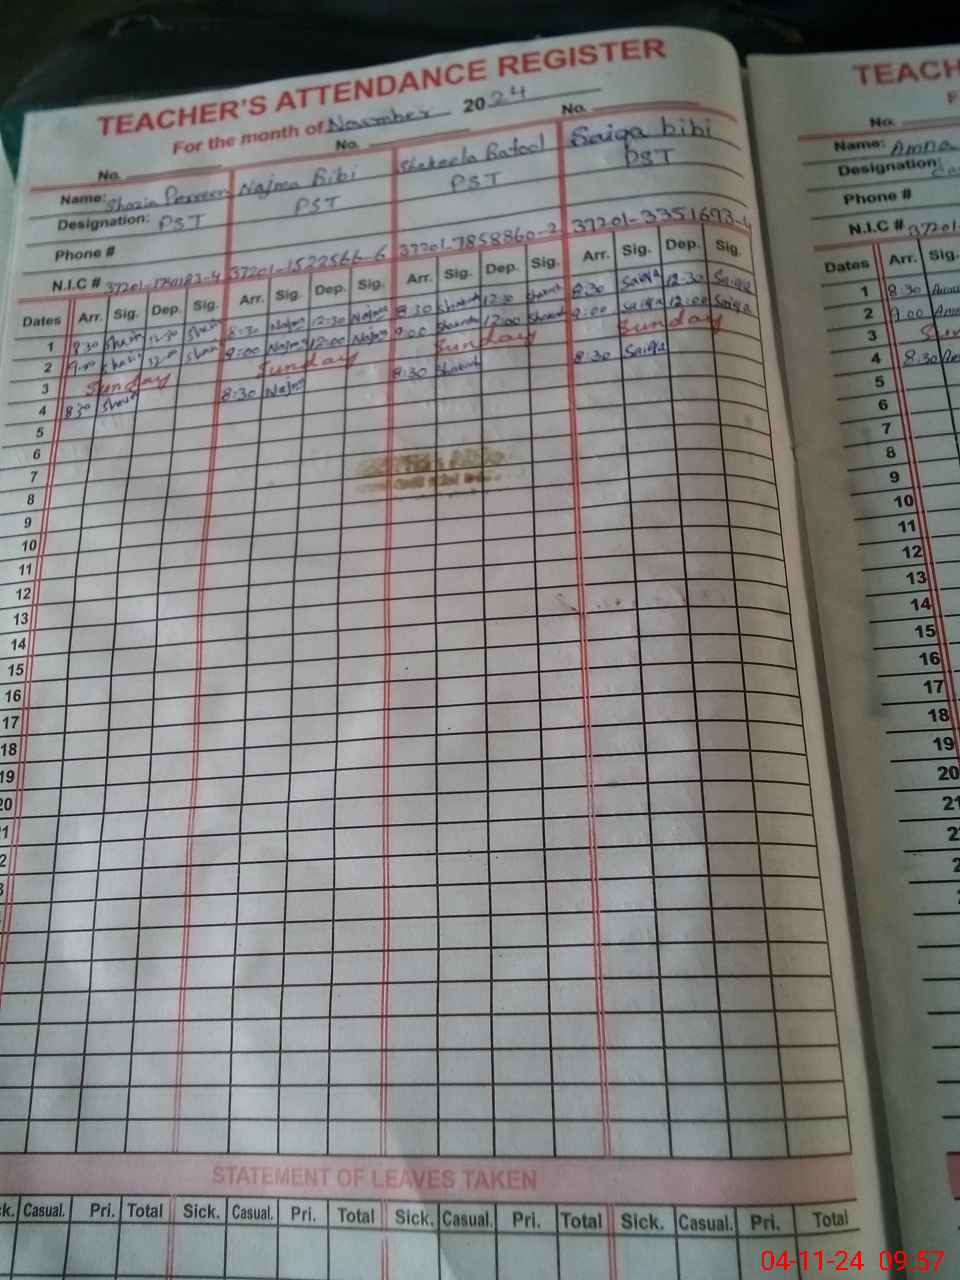 TEACHER'S ATTENDANCE REGISTER
For the month of November 2024
No. No. No.
Name: Shazia Perveen Najma Bibi Shakeela Batool Saiqa bibi
Designation: PST PST PST PST
Phone #
N.I.C # 37201-1522566-6 37201-7858860-2 37201-3351693-4
Dates Arr. Sig. Dep. Sig. Arr. Sig. Dep. Sig. Arr. Sig. Dep. Sig. Arr. Sig. Dep. Sig.
1 8:30 12:30 8:30 Najma 12:30 Najma 8:30 12:30 8:30 Saiqa 12:30 Saiqa
2 9:00 12:00 9:00 Najma 12:00 Najma 9:00 12:00 9:00 Saiqa 12:00 Saiqa
3 Sunday Sunday Sunday Sunday
4 8:30 8:30 Najma 8:30 8:30 Saiqa
5
6
7
8
9
10
11
12
13
14
15
16
17
18
19
20
STATEMENT OF LEAVES TAKEN
Casual. Pri. Total Sick. Casual. Pri. Total Sick. Casual. Pri. Total Sick. Casual. Pri. Total
TEACH
No.
Name: Amna
Designation:
Phone #
N.I.C # 37201-
Dates Arr. Sig.
1 8:30
2 9:00
3
4 8:30
5
6
7
8
9
10
11
12
13
14
15
16
17
18
19
20
04-11-24 09:57